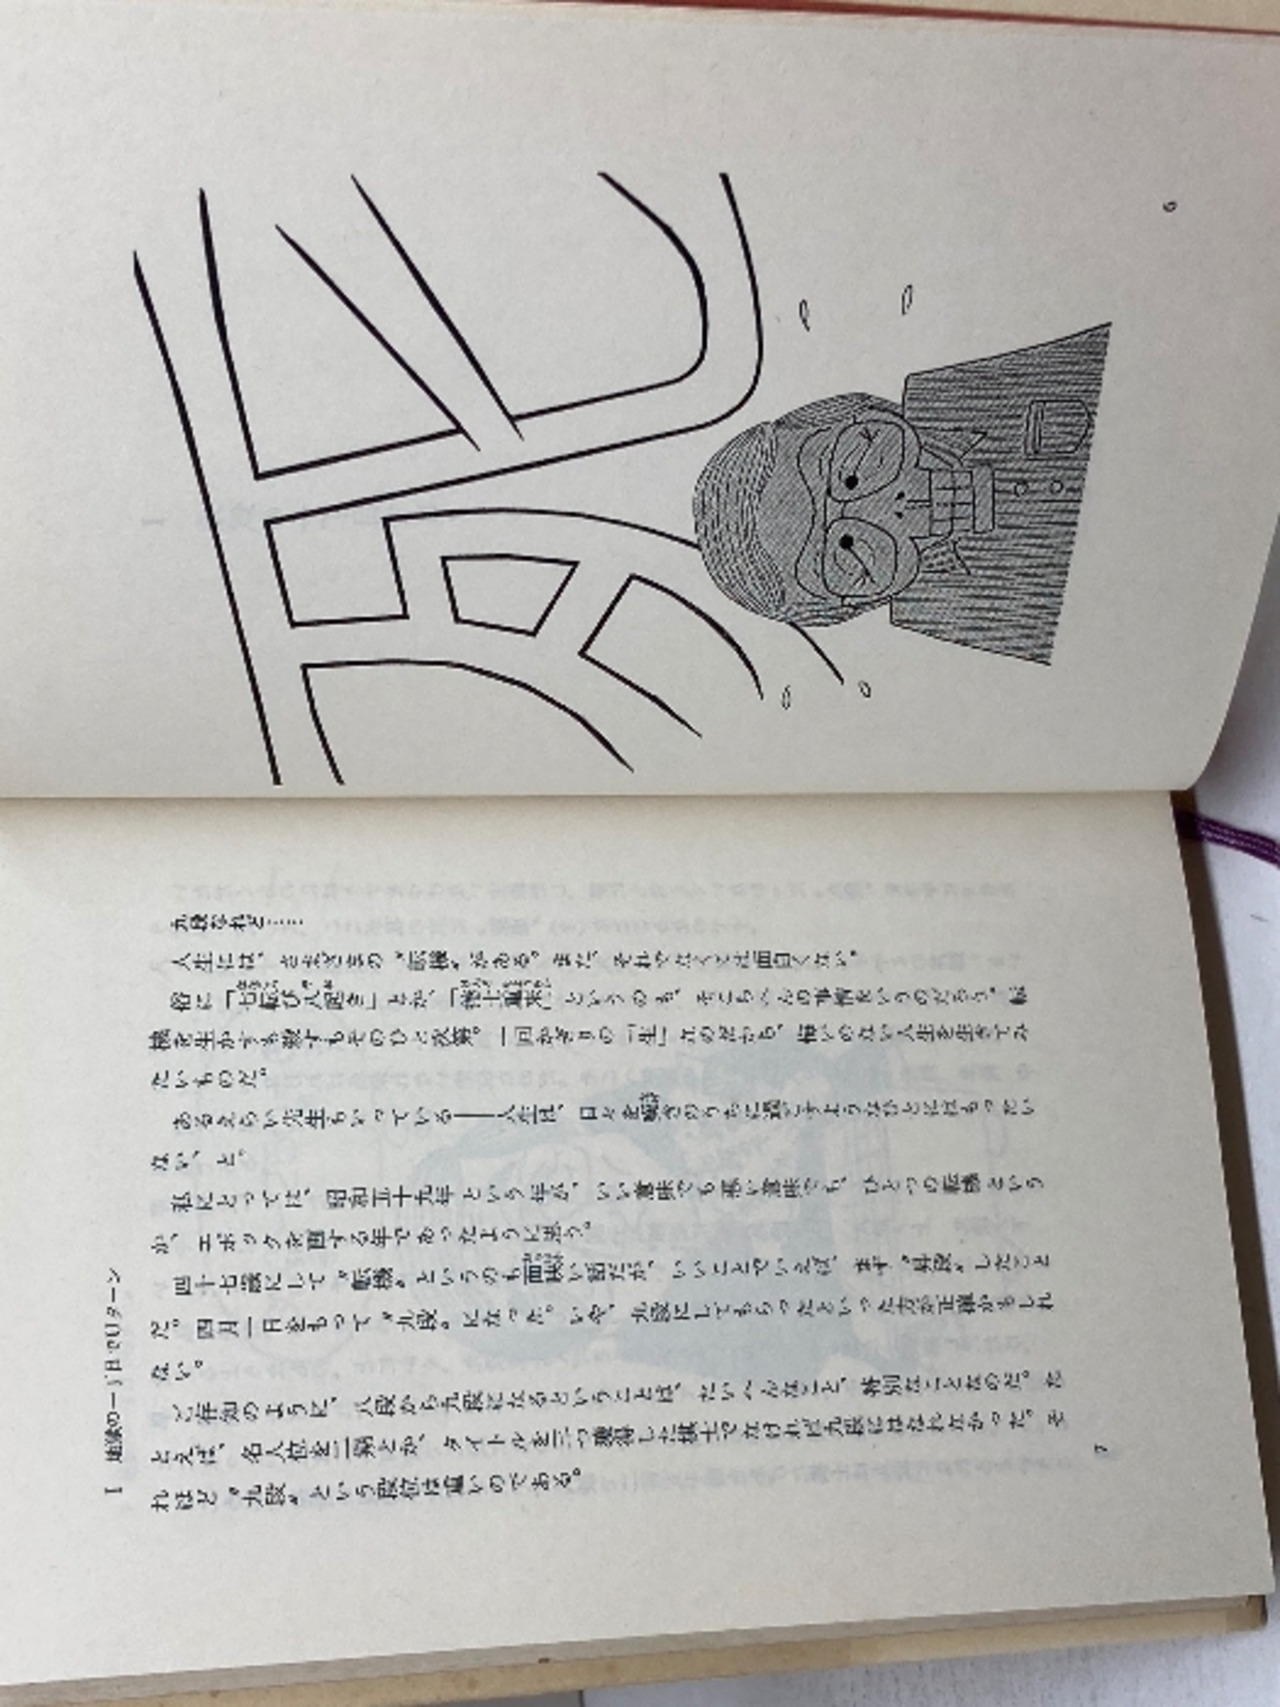 6
九段なれど……
人生には、さまざまの〝転機〟がある。また、それでなくては面白くない。
俗に「七転び八起き」とか、「捲土重来」というのも、そこらへんの事情をいうのだろう。転
機を生かすも殺すもそのひと次第。一回かぎりの「生」なのだから、悔いのない人生を生きてみ
たいものだ。
あるえらい先生もいっている――人生は、日々を騒ぎのうちに過ごすようなひとにはもったい
ない、と。
私にとっては、昭和五十九年という年が、いい意味でも悪い意味でも、ひとつの転機という
か、エポックを画する年であったように思う。
四十七歳にして〝転機〟というのも面映い話だが、いいことでいえば、まず〝昇段〟したこと
だ。四月一日をもって〝九段〟になった。いや、九段にしてもらったといった方が正確かもしれ
ない。
ご存知のように、八段から九段になるということは、たいへんなこと、特別なことなのだ。た
とえば、名人位を一期とか、タイトルを三つ獲得した棋士でなければ九段にはなれなかった。そ
れほど〝九段〟という段位は重いのである。
I 地獄の一丁目でUターン
7